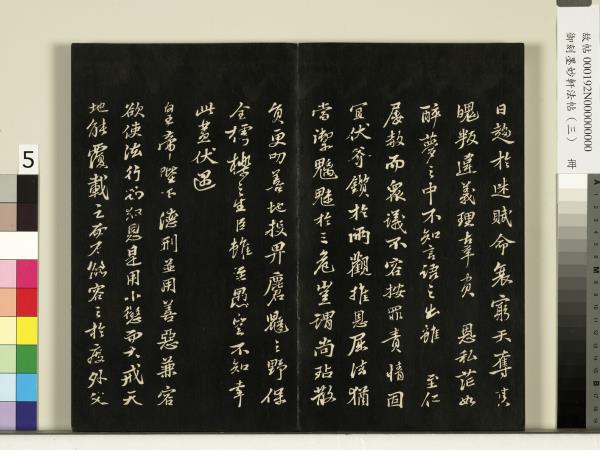 故帖 000192N000000000
御刻墨妙軒法帖（三） 冊
日趨於迷賦命衰窮天奪其
魄叛違義理辜負 恩私茫如
醉夢之中不知言語之出雖 至仁
屢赦而眾議不容按罪責情固
宜伏斧鑕於兩觀推恩屈法猶
當禦魑魅於三危豈謂尚玷散
負更叨善地投畀麏鼯之野保
全樗櫟之生臣雖至愚豈不知幸
此蓋伏遇
皇帝陛下德刑並用善惡兼容
欲使法行而知恩是用小懲而大戒天
地能覆載之而不能容之於度外父
5